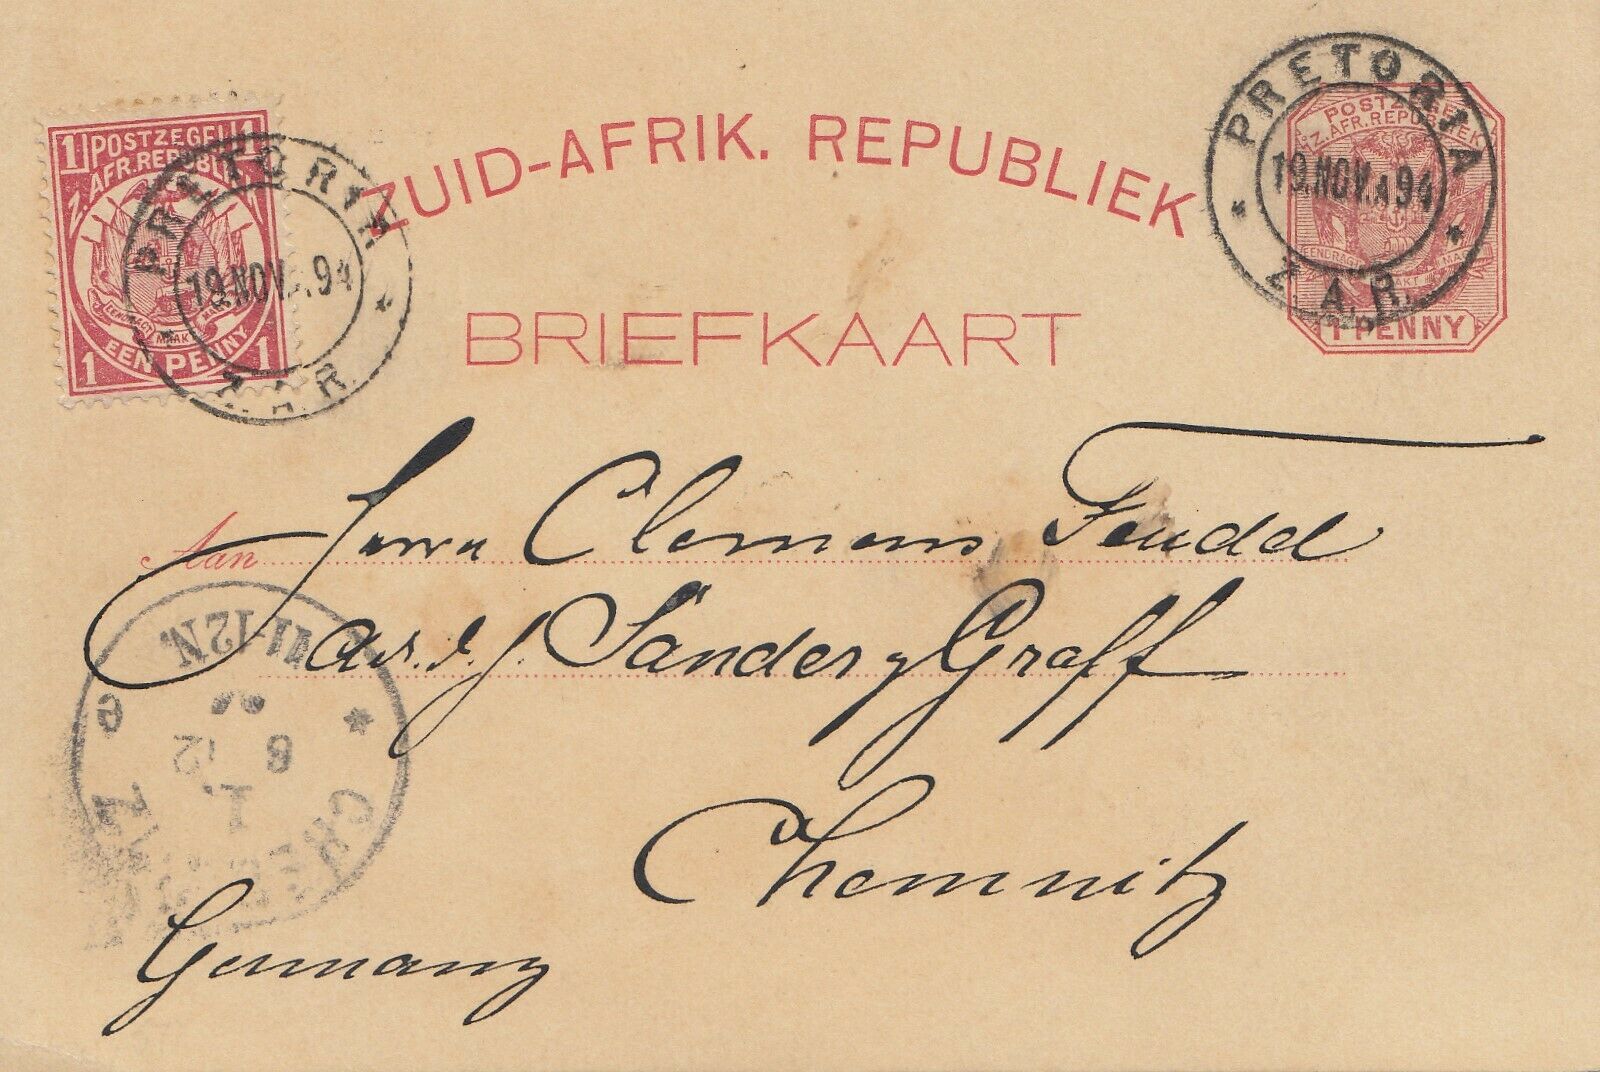 1 POSTZEGEL 1
Z. AFR. REPUBLIEK
EENDRAGT MAAKT MAGT
1 EEN PENNY 1
PRETORIA
19.NOV.94
Z.A.R.
ZUID-AFRIK. REPUBLIEK
BRIEFKAART
POSTZEGEL
Z. AFR. REPUBLIEK
EENDRAGT MAAKT MAGT
1 PENNY
PRETORIA
19.NOV.A94
Z.A.R.
Aan Herrn Clemens Feudel
Adr. d. J. Sander y Graff
Chemnitz
Germany
CHEMNITZ
I.
8 12
11-12N.
e